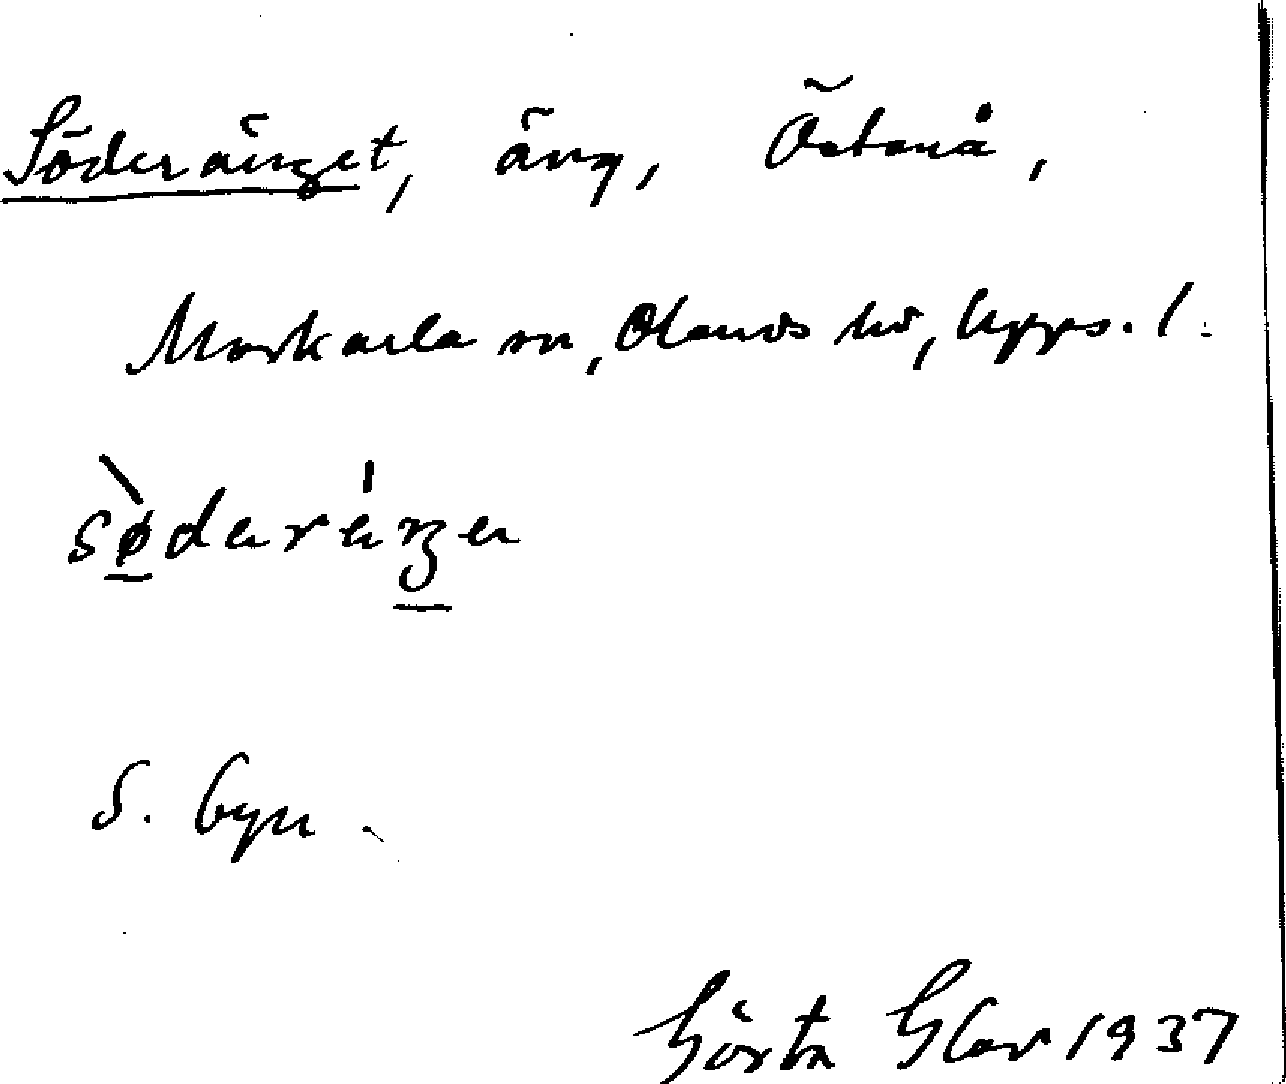 Söderänget, äng, Östanå,
Morkarla sn, Olands hd, Upps. l.
S. byn.
Gösta 1937